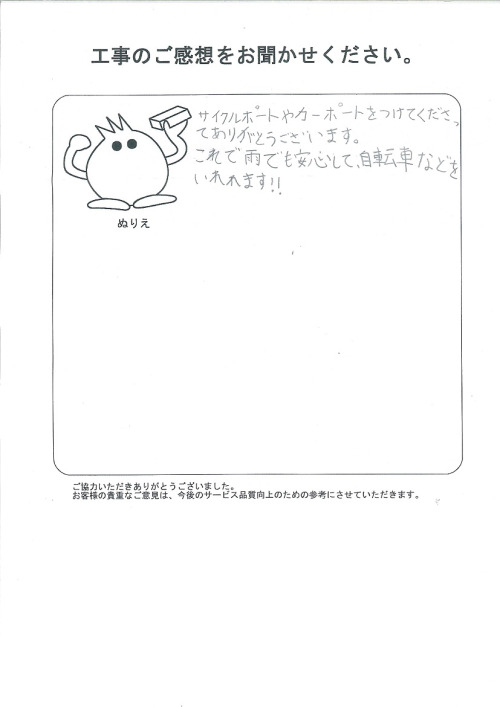 工事のご感想をお聞かせください。
サイクルポートやカーポートをつけてくださっ
てありがとうございます。
これで雨でも安心して、自転車などを
いれれます!!
ぬりえ
ご協力いただきありがとうございました。
お客様の貴重なご意見は、今後のサービス品質向上のための参考にさせていただきます。